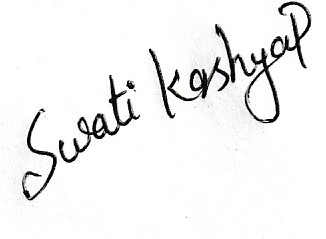 Swati Kashyap